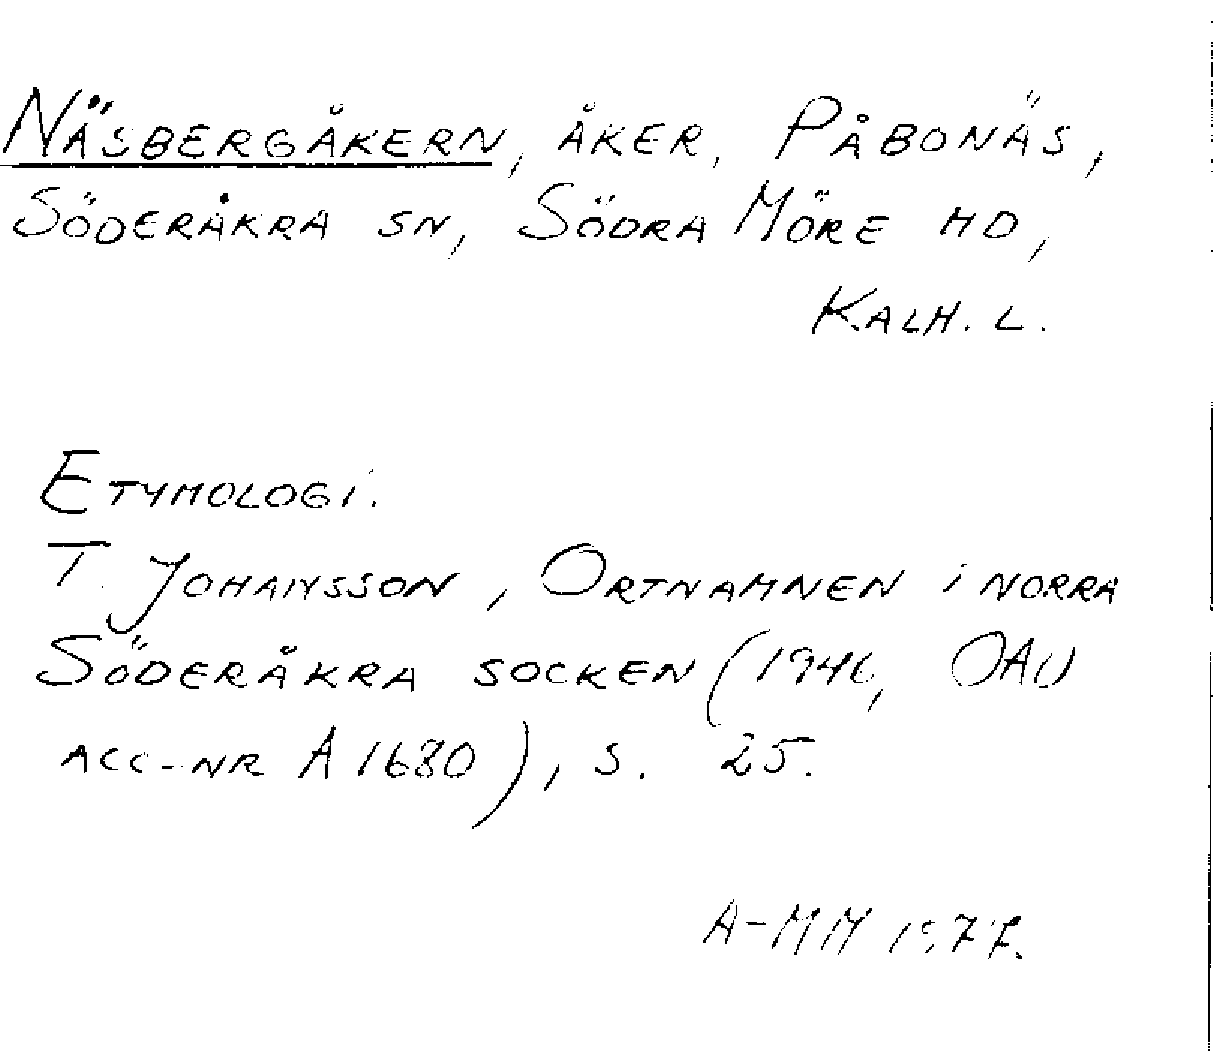 NÄSBERGÅKERN, ÅKER, PÅBONÄS,
SÖDERÅKRA SN, SÖDRA MÖRE HD,
KALM. L.
ETYMOLOGI.
T. JOHANSSON, ORTNAMNEN i NORRA
SÖDERÅKRA SOCKEN (1946, OAU
ACC-NR A 1680), S. 25.
A-MM 1977.